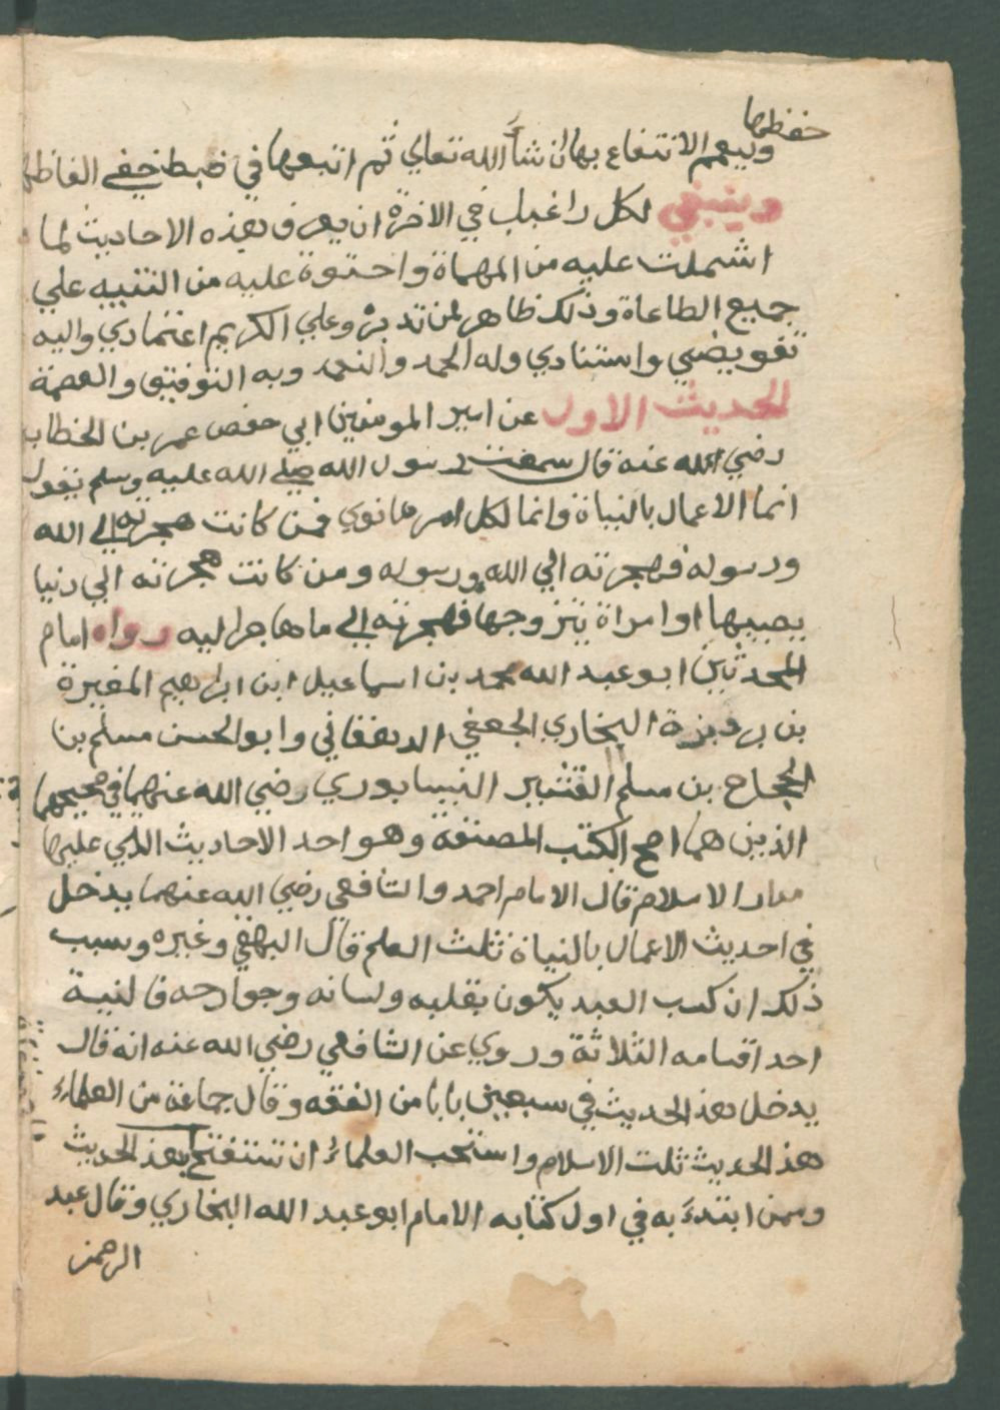 حفظها
ويعم الانتفاع بها ان شاء الله تعالي ثم اتبعها في ضبط خفي الفاظها
وينبغي لكل راغب في الاخرة ان يعرف هذه الاحاديث لما
اشملت عليه من المهماة واحتوة عليه من التنبيه علي
جميع الطاعاة وذلك ظاهر لمن تدبره وعلي الكريم اعتمادي واليه
تفويضي واستنادي وله الحمد والنعمة وبه التوفيق والعصمة
الحديث الاول عن امير المومنين ابي حفص عمر بن الخطاب
رضي الله عنه قال سمعت رسول الله صلي الله عليه وسلم يقول
انما الاعمال بالنياة وانما لكل امر ما نوي فمن كانت هجرته الي الله
ورسوله فهجرته الي الله ورسوله ومن كانت هجرته الي دنيا
يصيبها او امراة يتزوجها فهجرته الي ما هاجر اليه رواه امام
المحدثين ابو عبد الله محمد بن اسماعيل ابن ابراهيم المغيرة
بن بردبزة البخاري الجعفي وابو الحسن مسلم بن
الحجاج بن مسلم القشير النيسابوري رضي الله عنهما في صحيحهما
الذين هما اصح الكتب المصنفة وهو احد الاحاديث الذي عليها
مدار الاسلام قال الامام احمد والشافعي رضي الله عنهما يدخل
في احديث الاعمال بالنياة ثلث العلم قال البهقي وغيره وسبب
ذلك ان كسب العبد يكون بقلبه ولسانه وجوارحه فالنية
احد اقسامه الثلاثة وروي عن الشافعي رضي الله عنه انه قال
يدخل هذ الحديث في سبعين بابا من الفقه وقال جماعة من العلماء
هذ الحديث ثلث الاسلام واستحب العلماء ان تستفتح بهذ الحديث
وممن ابتدء به في اول كتابه الامام ابو عبد الله البخاري وقال عبد
الرحمن